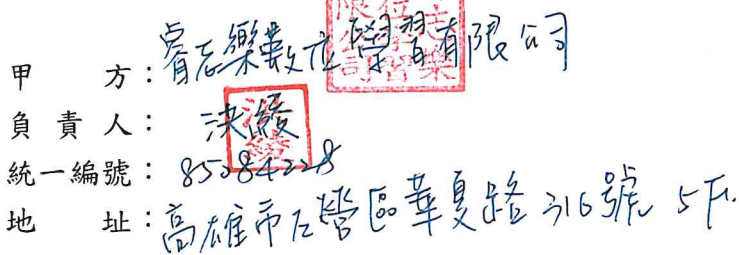 甲方：睿志樂數位學習有限公司
負責人：洪綾
統一編號：85284228
地址：高雄市左營區華夏路316號5F.